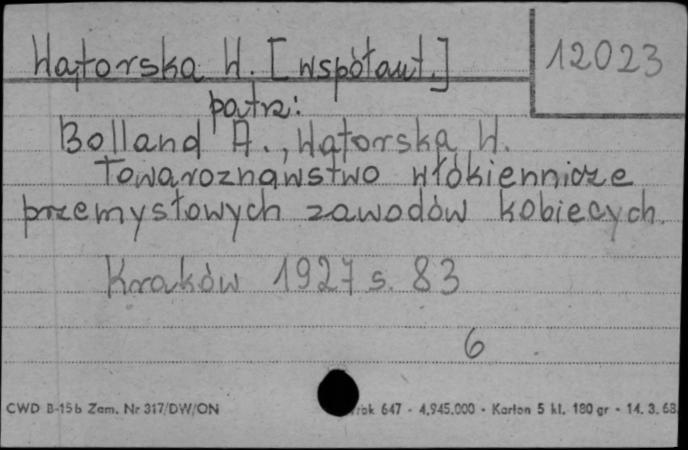 Wątorska W. [współaut.]
12023
patrz:
Bolland A., Wątorska W.
Towaroznawstwo włókiennicze
przemysłowych zawodów kobiecych.
Kraków 1927 s. 83
6
CWD B-15b Zam. Nr 317/DW/ON
rok 647 - 4.945.000 - Karton 5 kl. 180 gr - 14. 3. 68.